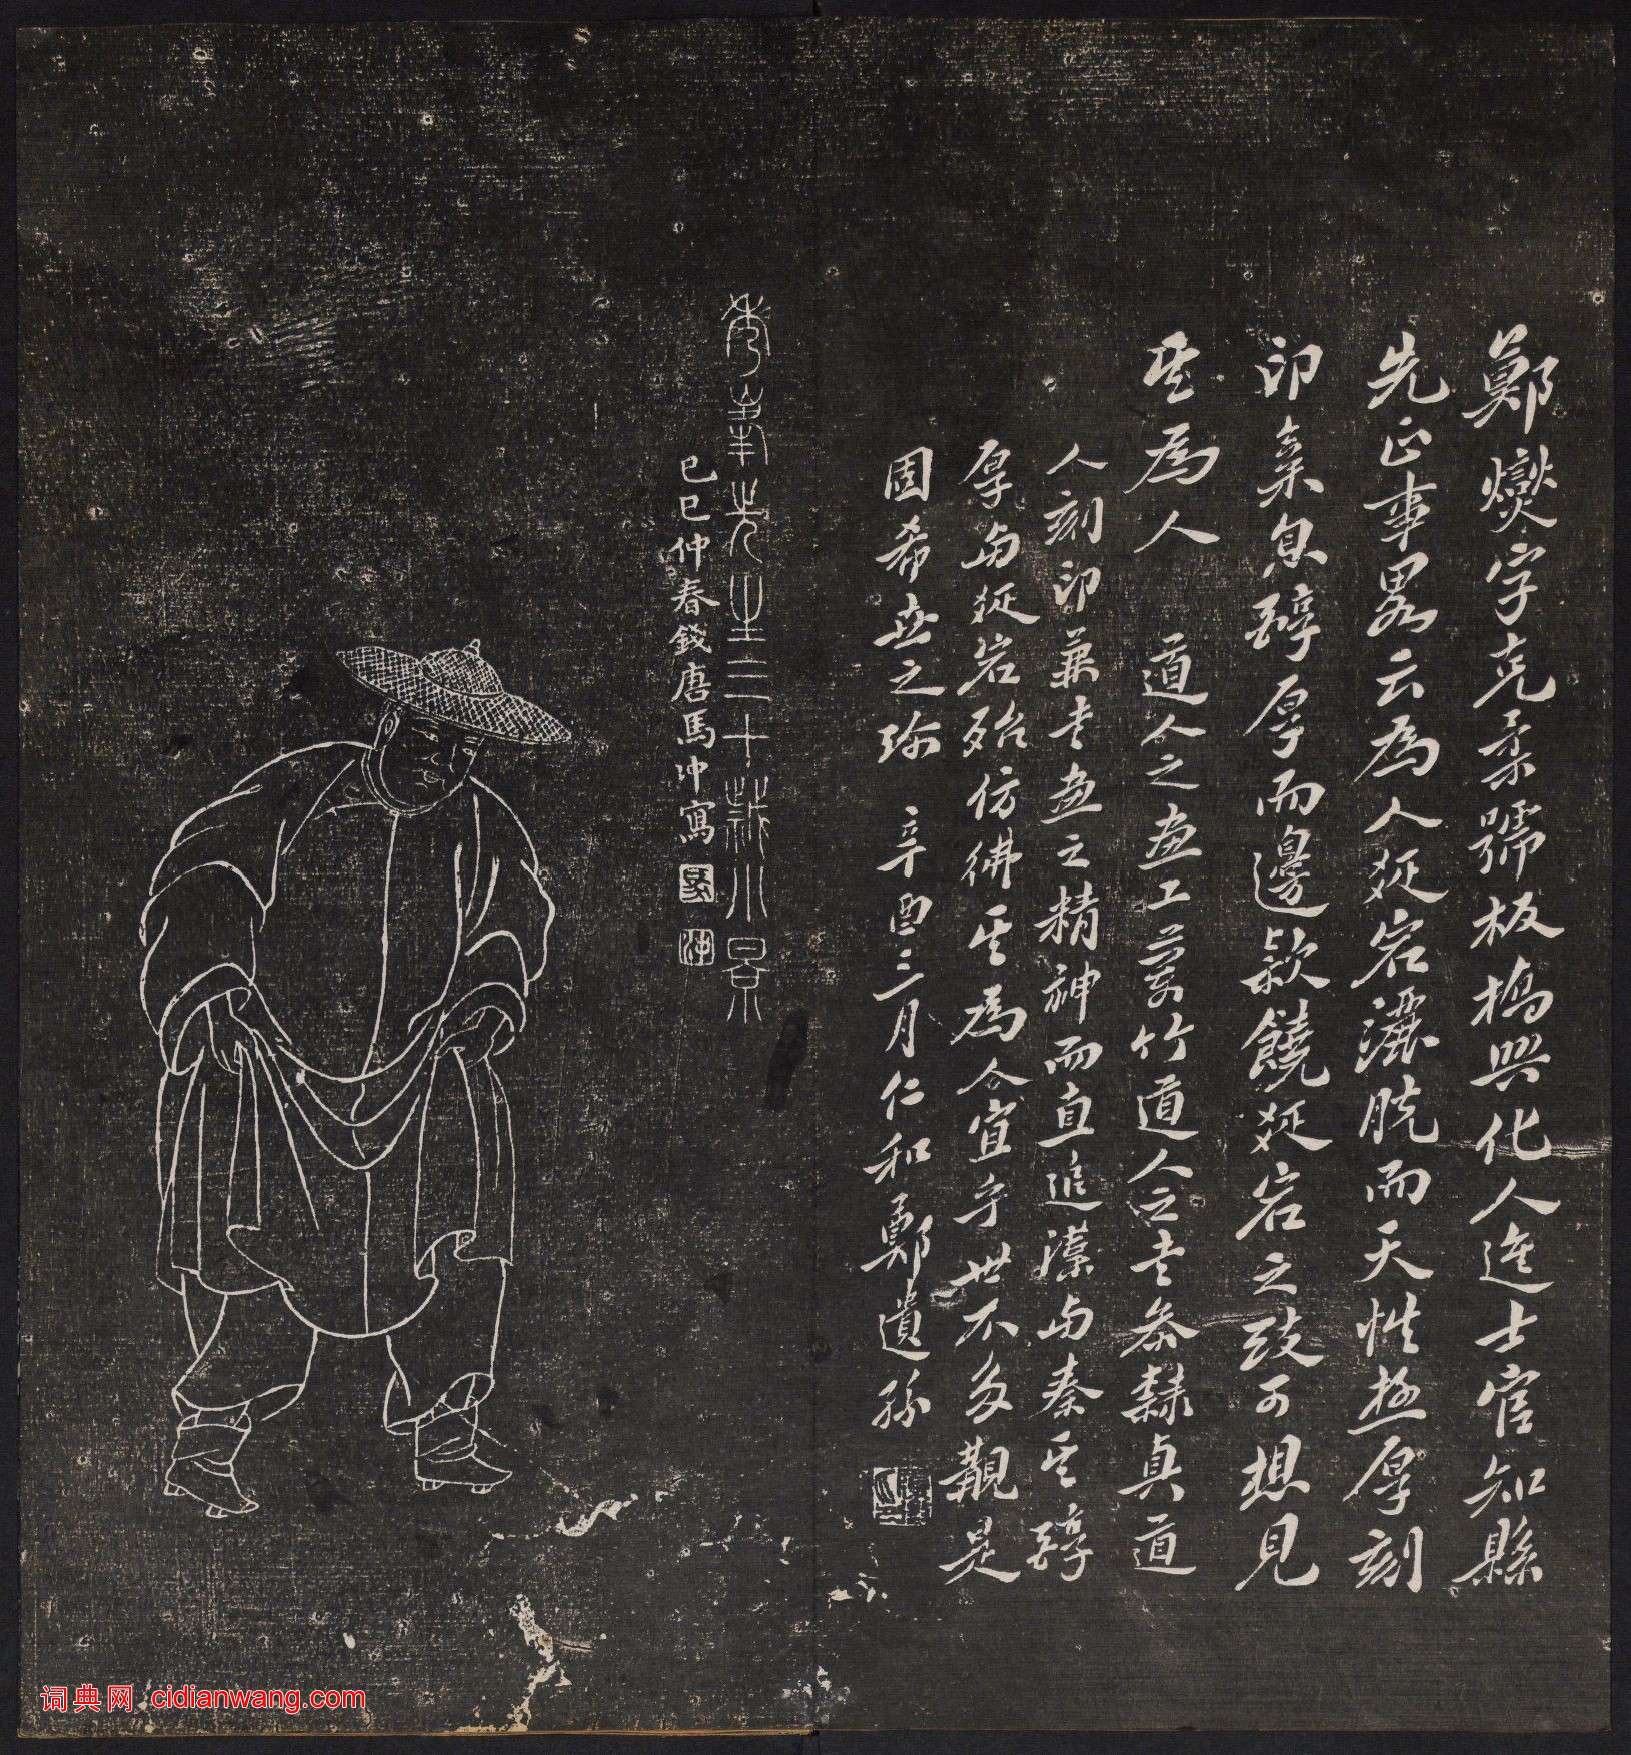 鄭燮字克柔號板橋興化人進士官知縣
先正事畧云為人疎宕灑脱而天性極厚刻
印氣息醇厚而邊款饒疎宕之致可想見
其為人 道人之畫工蘭竹道人之書參隸真道
人刻印兼書畫之精神而直追漢與秦其醇
厚與疎宕殆仿佛其為人宜乎世不多觀是
固希世之珍 辛酉三月仁和鄭遺孫
秀峯先生三十歲小景
己巳仲春錢唐馬冲寫
馬
冲
词典网 cidianwang.com